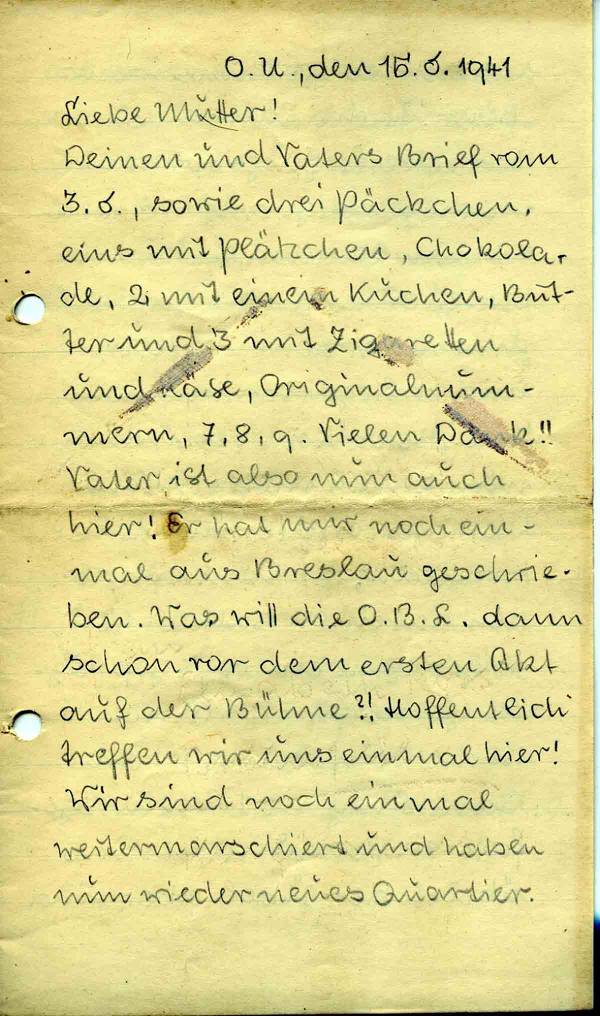 O.U., den 15.6.1941
Liebe Mutter!
Deinen und Vaters Brief vom
3.6., sowie drei Päckchen,
eins mit Plätzchen, Chokola-
de, 2, mit einem Kuchen, But-
ter und 3 mit Zigaretten
und Käse, Originalnum-
mern, 7, 8, 9. Vielen Dank!!
Vater ist also nun auch
hier! Er hat mir noch ein-
mal aus Breslau geschrie-
ben. Was will die O.B.L. dann
schon vor dem ersten Akt
auf der Bühne?!! Hoffentlich
treffen wir uns einmal hier!
Wir sind noch einmal
weitermarschiert und haben
nun wieder neues Quartier.